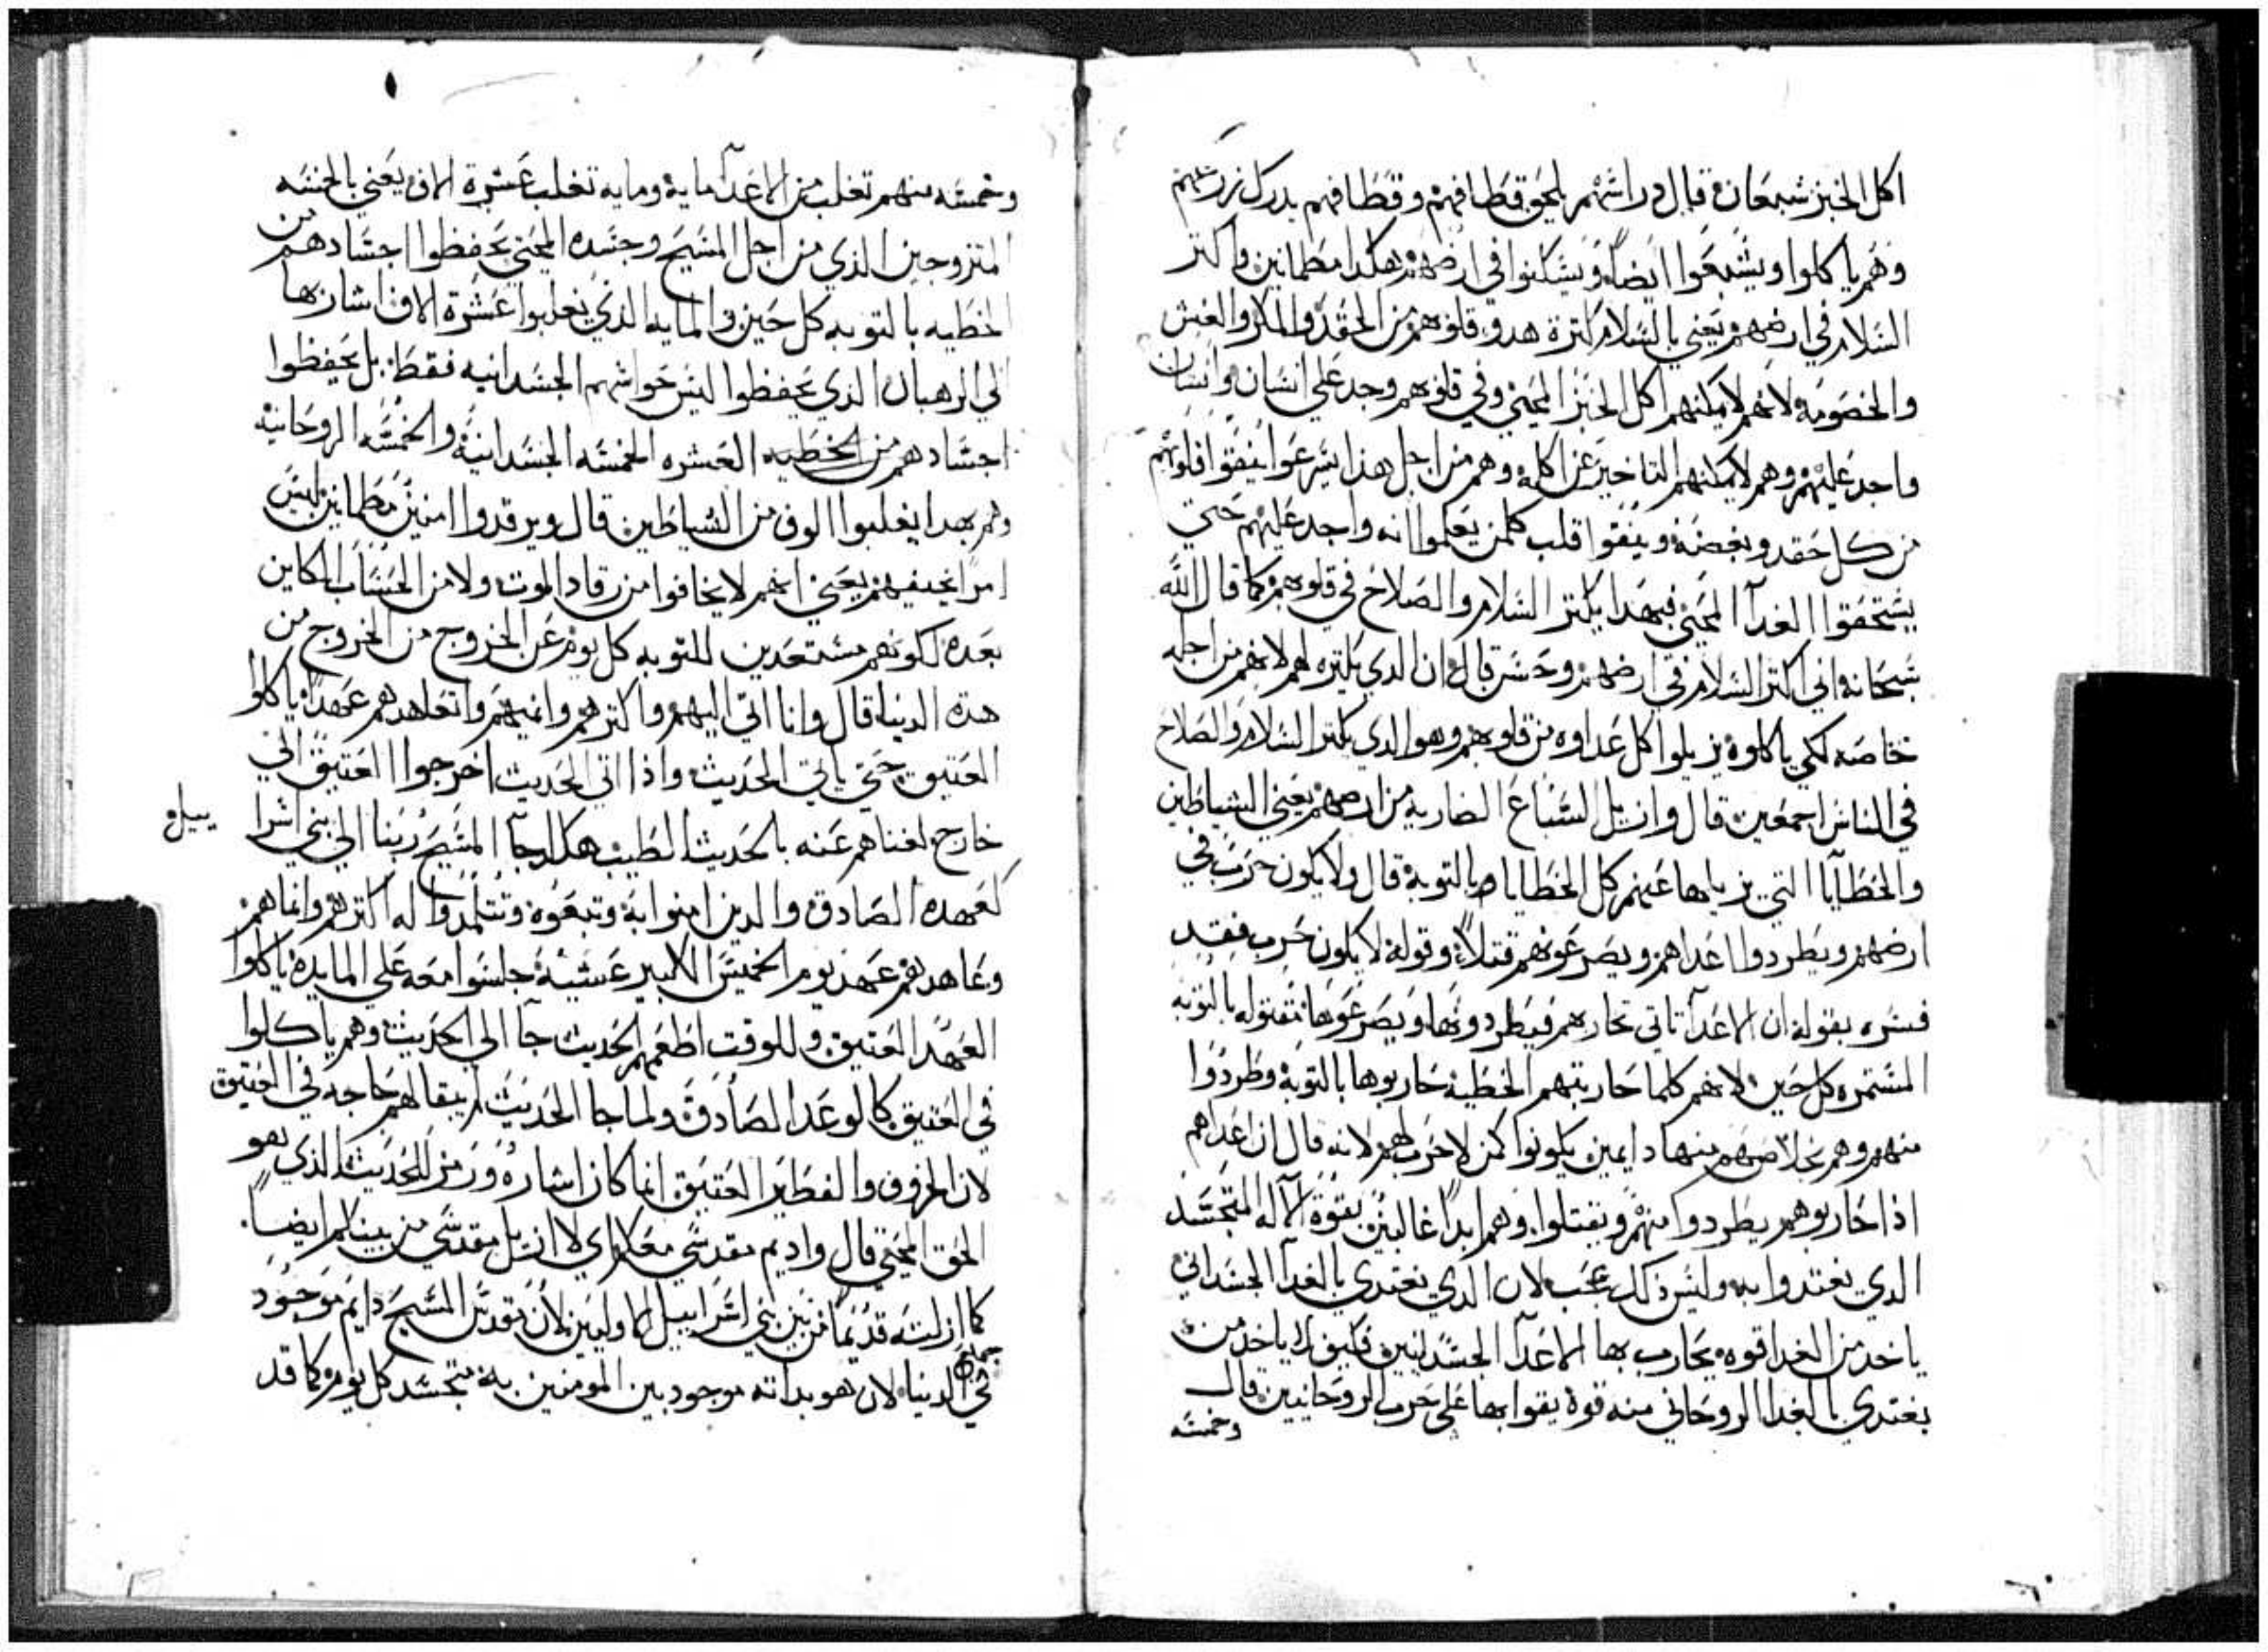 اكل الخبز شبعان قال دراسهم يلحق قطافهم وقطافهم يدرك زرعهم
وهم ياكلوا ويشبعوا ايضاً ويسكنوا في ارضهم هكدا مطمانين واكتر
السلام في ارضهم يعني بالسلام كترة هدو قلوبهم من الحقد والمكر والغش
والخصومه لانهم لا يمكنهم اكل الخبز المحيي وفي قلوبهم وجد علي انسان وانسان
واجد عليهم وهم لا يمكنهم التاخير عن اكله وهم من اجل هذا يسرعوا ينقوا قلوبهم
من كل حقد وبغضه وينقوا قلب كلمن يعلموا انه واجد عليهم حتي
يستحقوا الغدآ المحيي فبهدا يكتر السلام والصلاح في قلوبهم كما قال الله
سبحانه اني اكتر السلام في ارضهم وحسن قال ان الدي يكتره لهم لانهم من اجله
خاصه لكي ياكلوه يزيلوا كل عداوه من قلوبهم وهو الدي يكتر السلام والصلاح
في الناس اجمعين قال وازيل السباع الضاريه من ارضهم يعني الشياطين
والخطايا التي يزيلها عنهم كل الخطايا بالتوبة قال ولا يكون حرب في
ارضهم ويطردوا اعداهم ويصرعونهم قتلاً وقوله لا يكون حرب فقد
فسره بقوله ان الاعدآ تاتي تحاربهم فيطردونها ويصرعوها مقتوله بالتوبه
المستمره كل حين لانهم كلما حاربتهم الخطية حاربوها بالتوبة وطردوا
منهم وهم بخلاصهم منها دايمين يكونوا كمن لا حرب لهم لانه قال ان اعداهم
اذا حاربوهم يطردوا منهم ويقتلوا وهم ابداً غالبين بقوة الاله المتجسد
الدي يغتدوا به وليس ذلك عجب لان الدي يغتدي بالغدآ الجسداني
ياخد من الغدا قوه يحارب بها الاعدآ الجسدانيين فكيف لا ياخد من
يغتدي بالغدا الروحاني منه قوة يقوا بها علي حرب الروحانيين قال
وخمسه
وخمسه منهم تغلب من الاعدآ ماية ومايه تغلب عشرة الاف يعني بالخمسه
المتزوجين الذي من اجل المسيح وجسده المحيي يحفظوا اجسادهم من
الخطيه بالتوبه كل حين والمايه الذي يغلبوا عشرة الاف اشار بها
الي الرهبان الدي يحفظوا ليس حواسهم الجسدانيه فقط بل يحفظوا
اجسادهم من الخطيه العشره الخمسه الجسدانية والخمسه الروحانية
وهم بهدا يغلبوا الوف من الشياطين قال ويرقدوا امنين مطمانين ليس
امراً يخيفهم يعني انهم لا يخافوا من رقاد الموت ولا من الحساب الكاين
بعده لكونهم مستعدين للتوبه كل يوم عن الخروج من الخروج من
هده الدنيا قال وانا اتي اليهم واكترهم وانميهم واتعاهدهم عهداً ياكلوا
العتيق حتي ياتي الحديث واذا اتي الحديث اخرجوا العتيق الي
خارج لغناهم عنه بالحديث الطيب هكدا جآ المسيح ربنا الي بني اسرا
ييل و
كعهده الصادق والدين امنوا به وتبعوه وتتلمدوا له اكترهم وانماهم
وعاهدهم عهد يوم الخميس الكبير عشية جلسوا معه علي المايدة ياكلوا
العهد العتيق وللوقت اطعمهم الحديث جآ الي الحديث وهم ياكلوا
في العتيق كالوعد الصادق ولما جا الحديث لم يبقا لهم حاجه في العتيق
لان الخروف والفطير العتيق انما كان اشاره ورمز للحديث الذي هو
الحق المحيي قال واديم مقدسي معكم اي لا ازيل مقدسي من بينكم ايضاً
كما ازلته قديماً من بين بني اسراييل الاوليين لان مقدس المسيح دايم موجود
في الدنيا لان هو بداته موجود بين المومنين به متجسد كل يوم كما قد